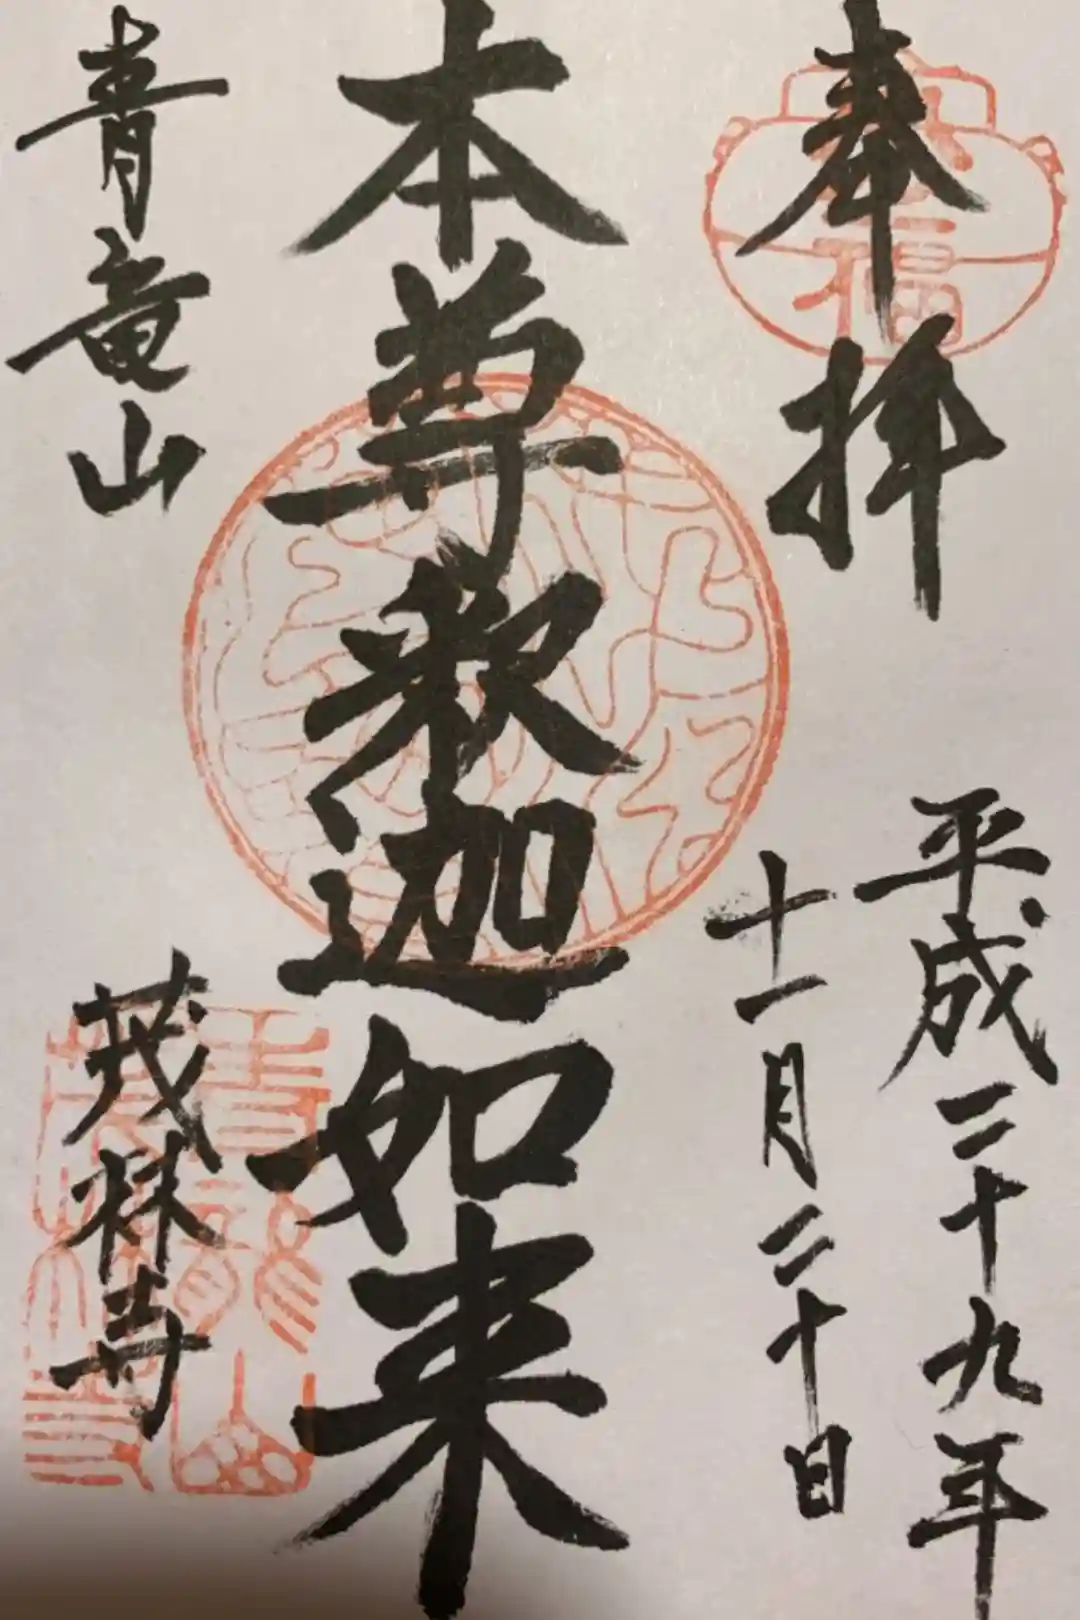 奉拝
平成二十九年
十一月二十日
本尊釈迦如来
青竜山
茂林寺
青龍山
茂林寺